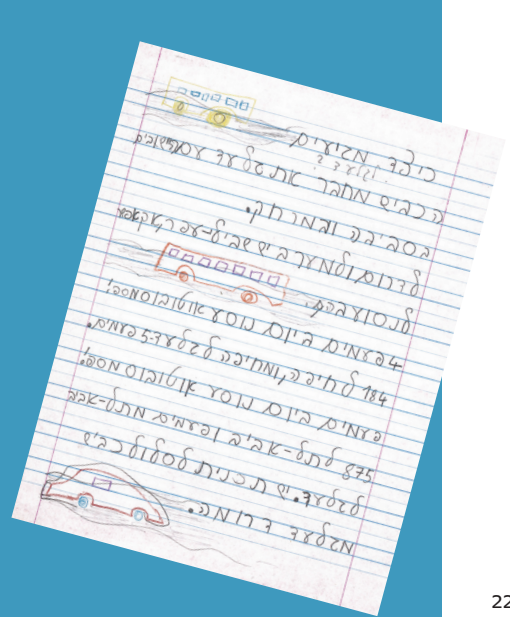 כיצד מגיעים
לגלעד?
הכביש מחבר את גלעד עם ישובים
בסביבה ובמרחק.
לדרום ולמערב יש שביל-עפר,
לנסוע בהם.
4 פעמים ביום נוסע אוטובוס מספר
184 לחיפה, ומחיפה לגלעד 5 פעמים.
פעמים ביום נוסע אוטובוס מספר
875 לתל-אביב ופעמים מתל-אביב
לגלעד. יש תכנית לסלול כביש
מגלעד דרומה.
22